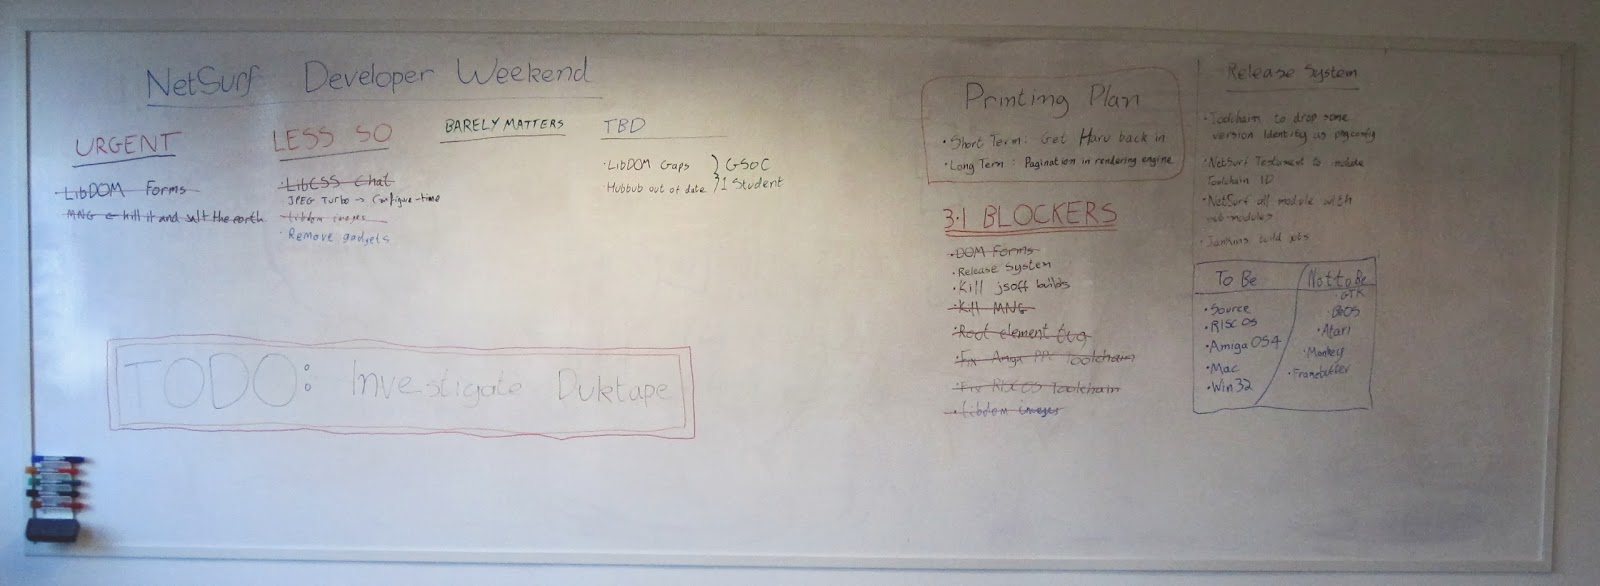 NetSurf Developer Weekend
URGENT
LibDOM Forms
MNG ← kill it and salt the earth
LESS SO
LibCSS Chat
JPEG Turbo → Configure-time
Libdom images
Remove gadgets
BARELY MATTERS
TBD
LibDOM Gaps
Hubbub out of date
GSOC
1 Student
TODO: Investigate Duktape
Printing Plan
Short Term: Get Haru back in
Long Term: Pagination in rendering engine
3.1 BLOCKERS
DOM Forms
Release System
Kill jsoff builds
Kill MNG
Root element bug
Fix Amiga PPC Toolchain
Fix RISC OS Toolchain
Libdom images
Release System
Toolchain to drop some
version Identity as pkgconfig
NetSurf Testament to include
Toolchain ID
NetSurf all module with
sub-modules
Jenkins build jobs
To Be
Source
RISC OS
Amiga OS4
Mac
Win 32
Not to Be
GTK
BeOS
Atari
Monkey
Framebuffer